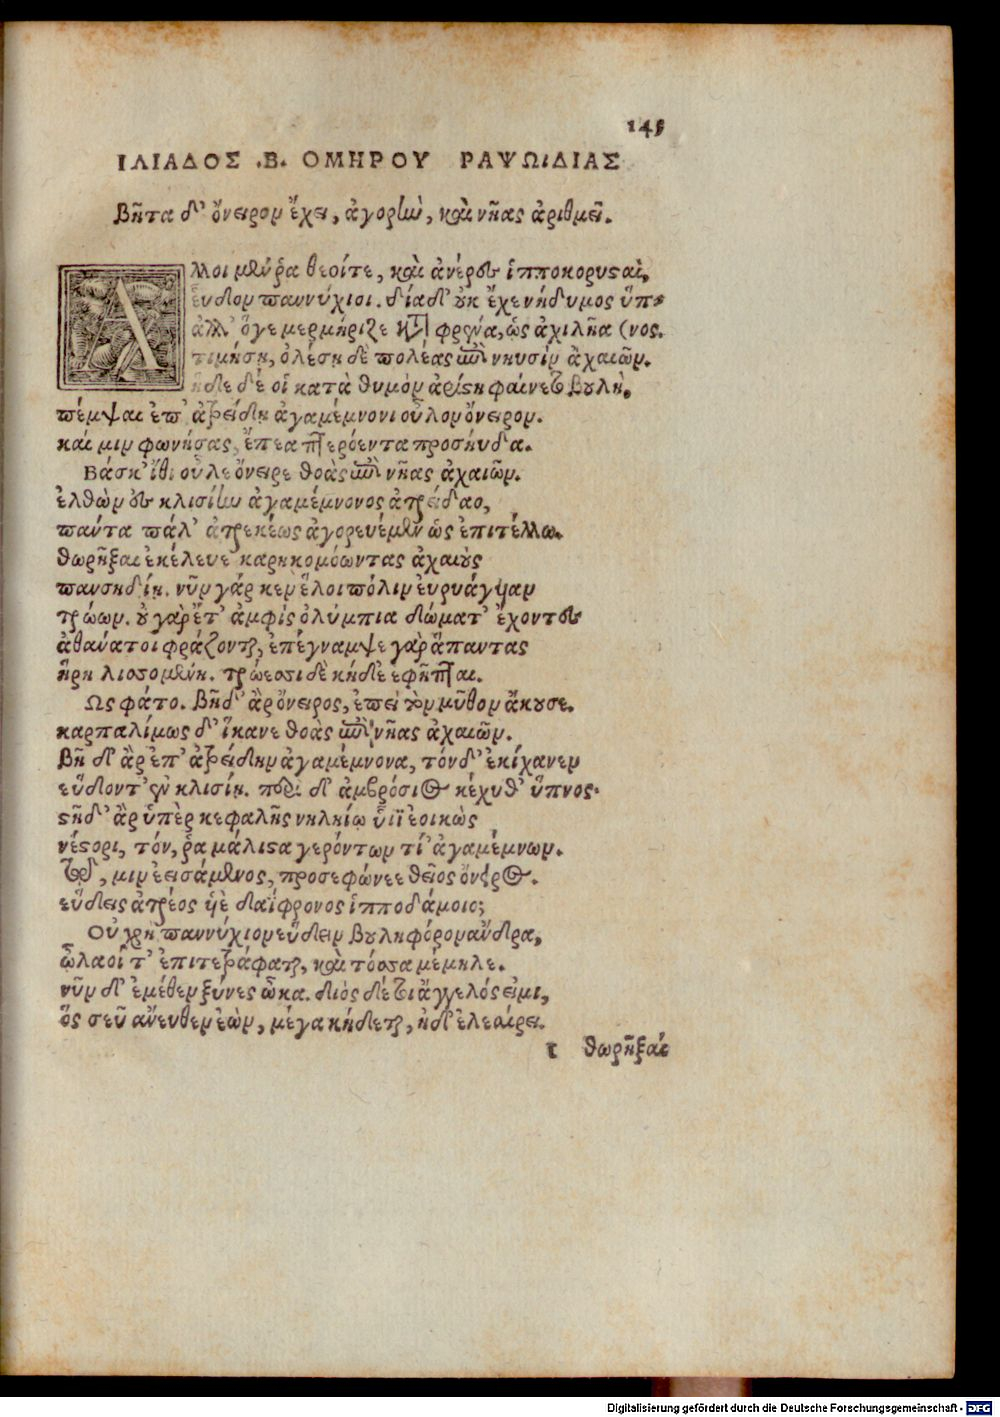 145
ΙΛΙΑΔΟΣ .Β. ΟΜΗΡΟΥ ΡΑΨΩΙΔΙΑΣ
Βῆτα δ' ὄνειρον ἔχει, ἀγορὴν, καὶ νῆας ἀριθμεῖ.
Ἄλλοι μὲν ῥα θεοί τε, καὶ ἀνέρες ἱπποκορυσαὶ,
εὗδον παννύχιοι. δία δ' οὐκ ἔχε νήδυμος ὕπ-
ἀλλ' ὅγε μερμήριζε κατὰ φρένα, ὡς ἀχιλῆα (νος.
τιμήσῃ, ὀλέσῃ δὲ πολέας ἐπὶ νηυσὶν ἀχαιῶν.
ἥδε δέ οἱ κατὰ θυμὸν ἀρίστη φαίνετο βουλὴ,
πέμψαι ἐπ' ἀτρείδῃ ἀγαμέμνονι οὖλον ὄνειρον.
καί μιν φωνήσας, ἔπεα πτερόεντα προσηύδα.
Βάσκ' ἴθι οὖλε ὄνειρε θοὰς ἐπὶ νῆας ἀχαιῶν.
ἐλθὼν ἐς κλισίην ἀγαμέμνονος ἀτρείδαο,
πάντα μάλ' ἀτρεκέως ἀγορευέμεν ὡς ἐπιτέλλω.
θωρῆξαι ἑ κέλευε καρηκομόωντας ἀχαιοὺς
πανσηδίῃ. νῦν γάρ κεν ἕλοι πόλιν εὐρυάγυιαν
τρώων. οὐ γὰρ ἔτ' ἀμφὶς ὀλύμπια δώματ' ἔχοντες
ἀθάνατοι φράζονται, ἐπέγναμψε γὰρ ἅπαντας
ἥρη λισσομένη. τρώεσσι δὲ κήδε ἐφῆπται.
Ὣς φάτο. βῆ δ' ἂρ ὄνειρος, ἐπεὶ τὸν μῦθον ἄκουσε.
καρπαλίμως δ' ἵκανε θοὰς ἐπὶ νῆας ἀχαιῶν.
βῆ δ' ἂρ ἐπ' ἀτρείδην ἀγαμέμνονα, τὸν δ' ἐκίχανεν
εὕδοντ' ἐν κλισίῃ. περὶ δ' ἀμβρόσιος κέχυθ' ὕπνος.
στῆ δ' ἂρ ὑπὲρ κεφαλῆς νηληίῳ υἷϊ ἐοικὼς
νέστορι, τόν, ῥα μάλιστα γερόντων τί' ἀγαμέμνων.
τῷ, μιν ἐεισάμενος, προσεφώνεε θεῖος ὄνειρος.
εὕδεις ἀτρέος υἱὲ δαΐφρονος ἱπποδάμοιο;
Οὐ χρὴ παννύχιον εὕδειν βουληφόρον ἄνδρα,
ᾧ λαοί τ' ἐπιτετράφαται, καὶ τόσσα μέμηλε.
νῦν δ' ἐμέθεν ξύνες ὦκα. διὸς δέ τοι ἄγγελός εἰμι,
ὅς σεῦ ἄνευθεν ἐὼν, μέγα κήδεται, ἠδ' ἐλεαίρει.
τ θωρῆξαι
Digitalisierung gefördert durch die Deutsche Forschungsgemeinschaft - DFG